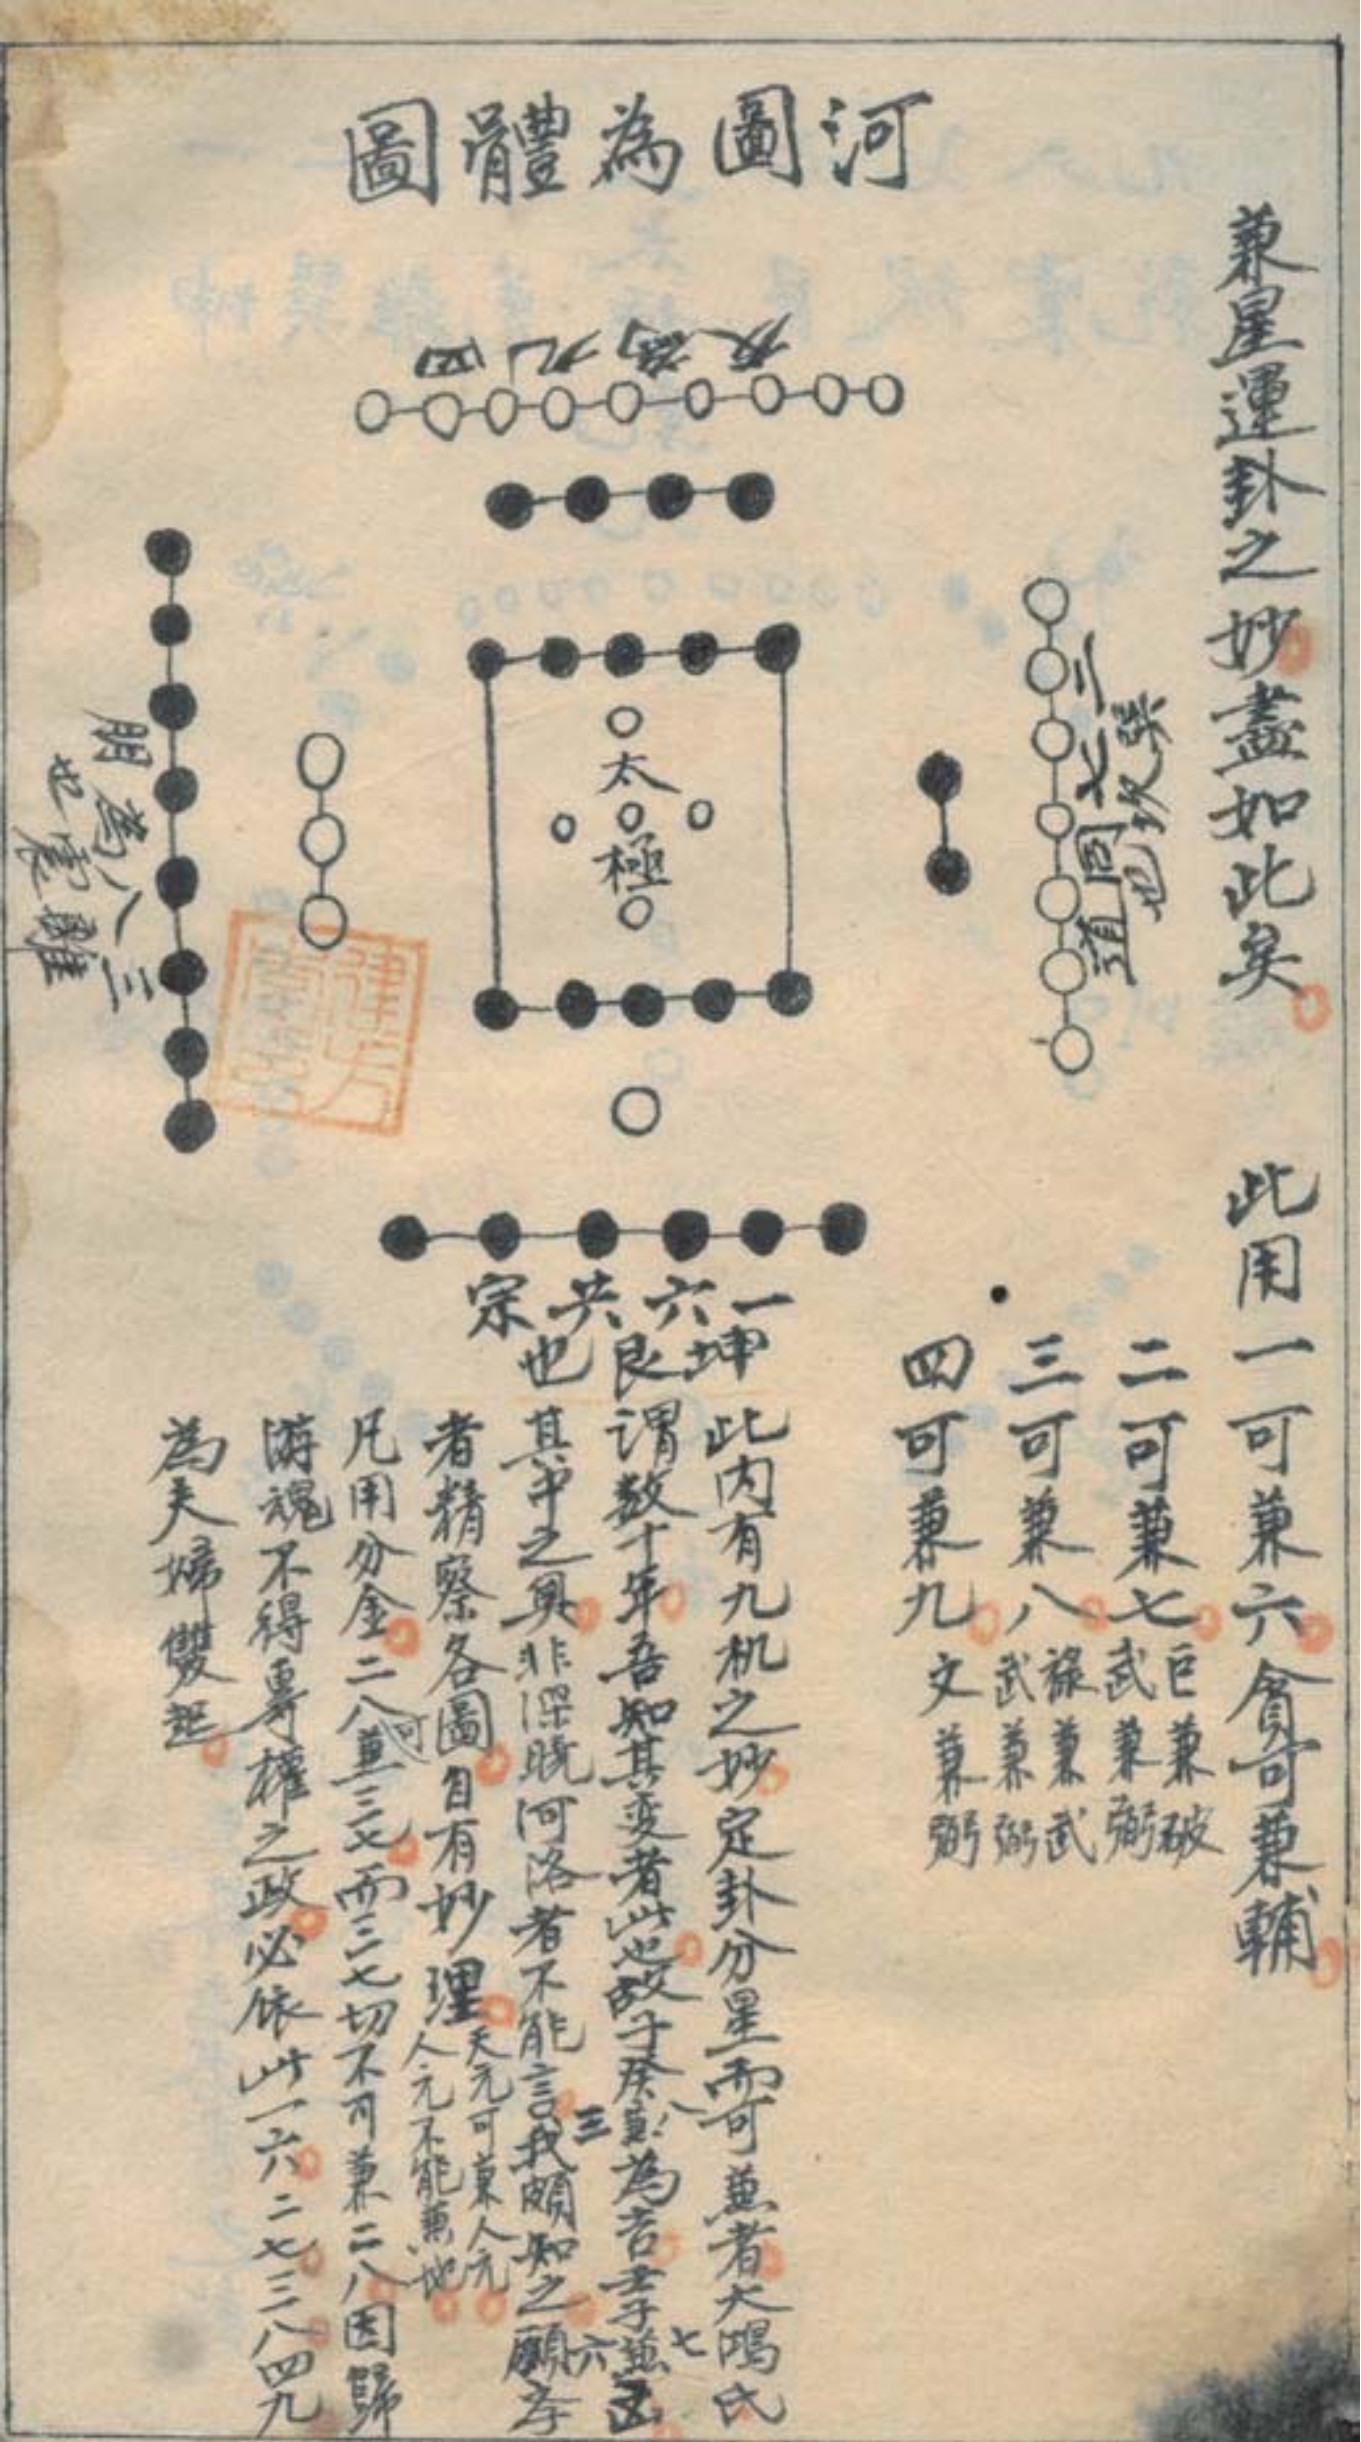 河圖為體圖
兼星運卦之妙盡如此矣
此用一可兼六貪可兼輔
二可兼七
巨兼破
武兼弼
三可兼八
祿兼武
武兼弼
四可兼九
文兼弼
四九為友
二七同道
坎巽也
三八為朋
離震也
太極
一六共宗
坤艮也
此內有九机之妙定卦分星而可兼者大鴻氏
謂数十年吾知其变者此也故子癸為吉壬子兼凶
三八
六七
其中之奥非深晓河洛者不能言我頗知之願孝
者精察各圖自有妙理
天元可兼人元
人元不能兼地
凡用分金二八可兼三七而三七切不可兼二八因歸
游魂不得專權之政必依此一六二七三八四九
為夫婦雙起